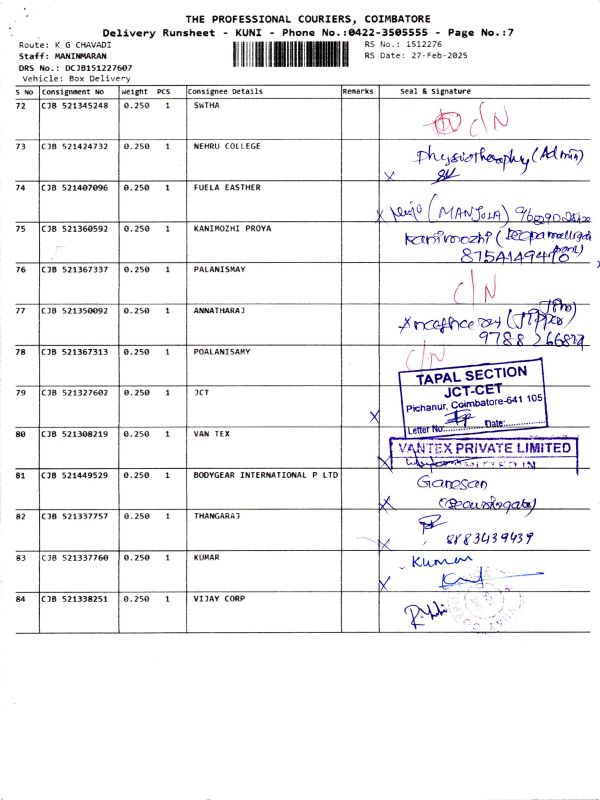 THE PROFESSIONAL COURIERS, COIMBATORE
Delivery Runsheet - KUNI - Phone No.:0422-3505555 - Page No.:7
Route: K G CHAVADI
RS No.: 1512276
Staff: MANINMARAN
RS Date: 27-Feb-2025
DRS No.: DCJB151227607
Vehicle: Box Delivery
S No Consignment No Weight PCS Consignee Details Remarks Seal & Signature
72 CJB 521345248 0.250 1 SWTHA
C/N
73 CJB 521424732 0.250 1 NEHRU COLLEGE
Physiotheraphy (Admin)
74 CJB 521407096 0.250 1 FUELA EASTHER
(MANJULA)
75 CJB 521360592 0.250 1 KANIMOZHI PROYA
Kanimozhi
8754149410
76 CJB 521367337 0.250 1 PALANISMAY
C/N
77 CJB 521350092 0.250 1 ANNATHARAJ
9788266827
78 CJB 521367313 0.250 1 POALANISAMY
C/N
79 CJB 521327602 0.250 1 JCT
TAPAL SECTION
JCT-CET
Pichanur, Coimbatore-641 105
Letter No:............ Date:............
80 CJB 521308219 0.250 1 VAN TEX
VANTEX PRIVATE LIMITED
81 CJB 521449529 0.250 1 BODYGEAR INTERNATIONAL P LTD
Ganesan
82 CJB 521337757 0.250 1 THANGARAJ
8883439439
83 CJB 521337760 0.250 1 KUMAR
Kumar
84 CJB 521338251 0.250 1 VIJAY CORP